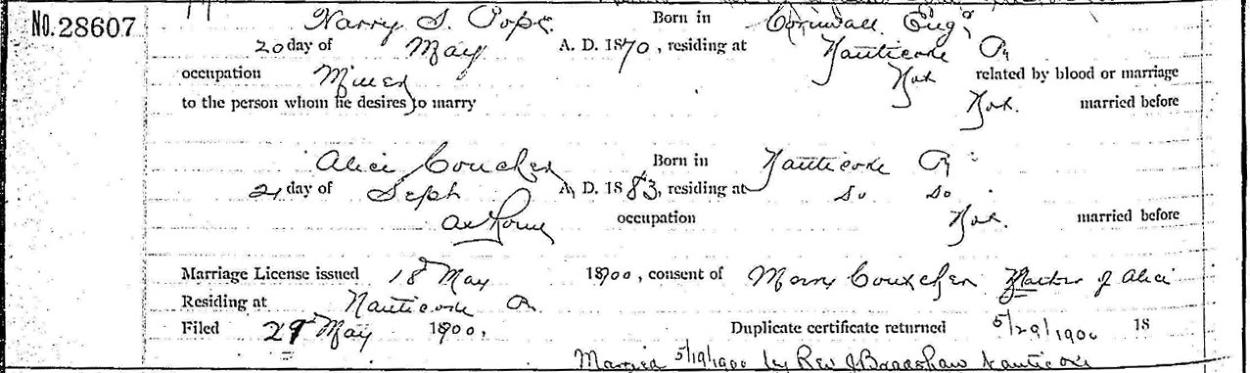 No. 28607 Harry S. Pope Born in Cornwall Eng.
20 day of May A. D. 1870, residing at Nanticoke Pa
occupation Miner Not related by blood or marriage
to the person whom he desires to marry Not. married before
Alice Born in Nanticoke Pa
21 day of Sept A. D. 1883, residing at Do Do
at Home occupation Not. married before
Marriage License issued 18 May 1900, consent of Mary Mother of Alice
Residing at Nanticoke Pa
Filed 29 May 1900. Duplicate certificate returned 5/29/1900 18
Married 5/19/1900 by Rev J Bradshaw Nanticoke